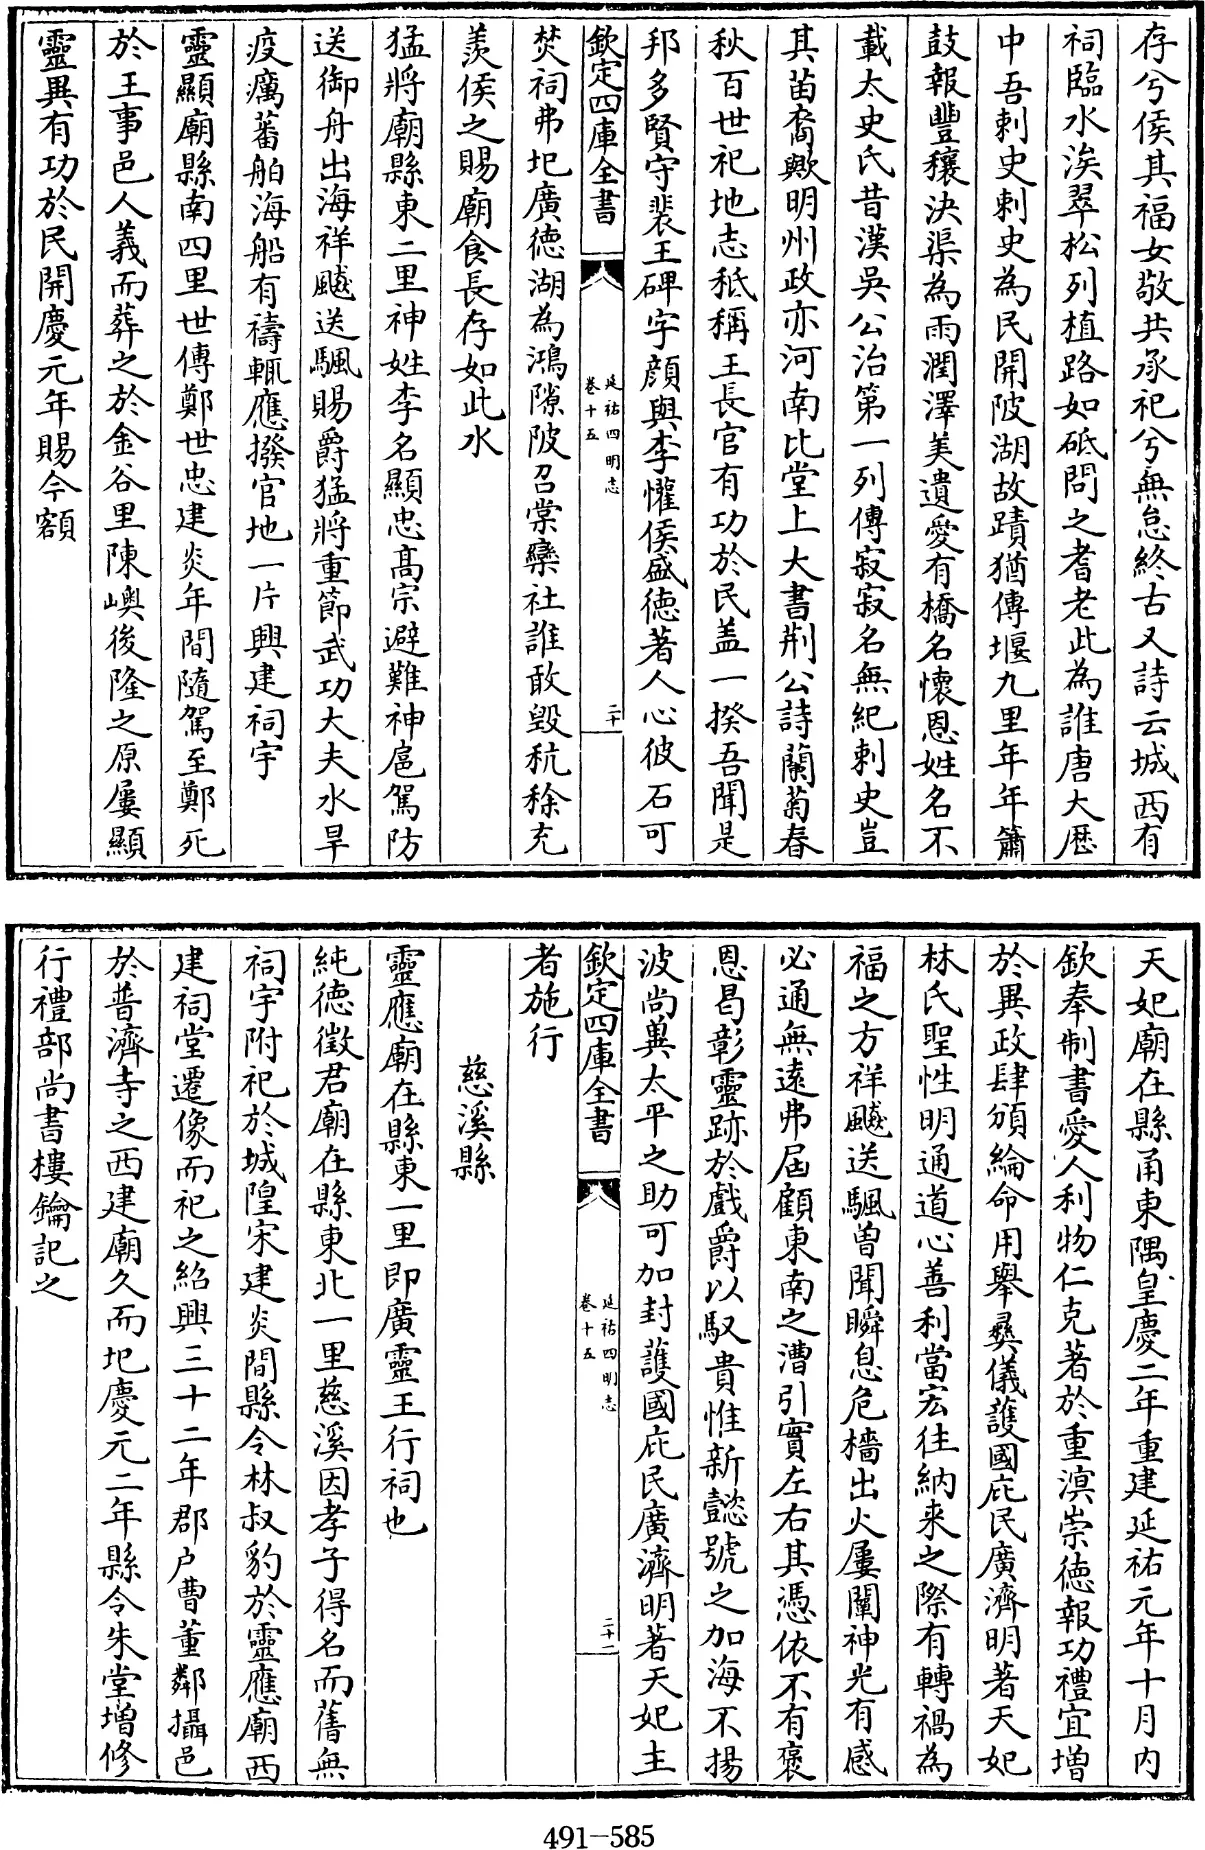 存兮侯其福女敬共承祀兮無怠終古又詩云城西有
祠臨水涘翠松列植路如砥問之耆老此為誰唐大厯
中吾刺史刺史為民開陂湖故蹟猶傳堰九里年年簫
鼓報豐穰決渠為雨潤澤美遺愛有橋名懷恩姓名不
載太史氏昔漢吳公治第一列傳寂寂名無紀刺史豈
其苗裔歟明州政亦河南比堂上大書荆公詩蘭菊春
秋百世祀地志秪稱王長官有功於民盖一揆吾聞是
邦多賢守裴王碑字顔與李懼侯盛徳著人心彼石可
欽定四庫全書
延祐四明志
卷十五
二十
焚祠弗圯廣徳湖為鴻隙陂召棠欒社誰敢毀秔稌充
羨侯之賜廟食長存如此水
猛將廟縣東二里神姓李名顯忠髙宗避難神扈駕防
送御舟出海祥飈送颿賜爵猛將重節武功大夫水旱
疫癘蕃舶海船有禱輒應撥官地一片興建祠宇
靈顯廟縣南四里世傳鄭世忠建炎年間隨駕至鄭死
於王事邑人義而葬之於金谷里陳㠘後隆之原屢顯
靈異有功於民開慶元年賜今額
天妃廟在縣甬東隅皇慶二年重建延祐元年十月内
欽奉制書愛人利物仁克著於重溟崇徳報功禮宜增
於異政肆頒綸命用舉彞儀護國庇民廣濟明著天妃
林氏聖性明通道心善利當宏往納來之際有轉禍為
福之方祥飈送颿曽聞瞬息危檣出火屢闡神光有感
必通無遠弗屆顧東南之漕引實左右其憑依不有褒
恩曷彰靈跡於戲爵以馭貴惟新懿號之加海不揚
波尚兾太平之助可加封護國庇民廣濟明著天妃主
欽定四庫全書
延祐四明志
卷十五
二十一
者施行
慈溪縣
靈應廟在縣東一里即廣靈王行祠也
純徳徵君廟在縣東北一里慈溪因孝子得名而舊無
祠宇附祀於城隍宋建炎間縣令林叔豹於靈應廟西
建祠堂遷像而祀之紹興三十二年郡户曹董鄰攝邑
於普濟寺之西建廟久而圯慶元二年縣令朱堂增修
行禮部尚書樓鑰記之
491-585